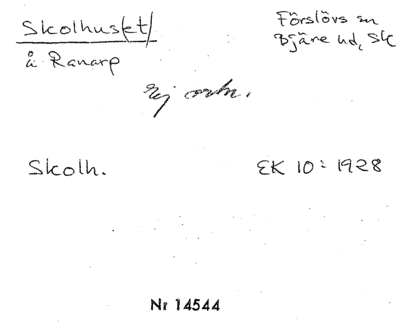 Skolhuset/
å Ranarp
Förslövs sn
Bjäre hd, Sk
Ej
Skolh.
EK 10:1928
Nr 14544